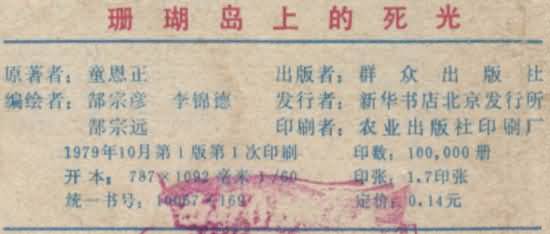 珊瑚岛上的死光
原著者：童恩正 出版者：群众出版社
编绘者：郜宗彦 李锦德 发行者：新华书店北京发行所
郜宗远 印刷者：农业出版社印刷厂
1979年10月第1版第1次印刷 印数：100,000册
开本：787×1092毫米 1/60 印张：1.7印张
统一书号：10067×169 定价：0.14元